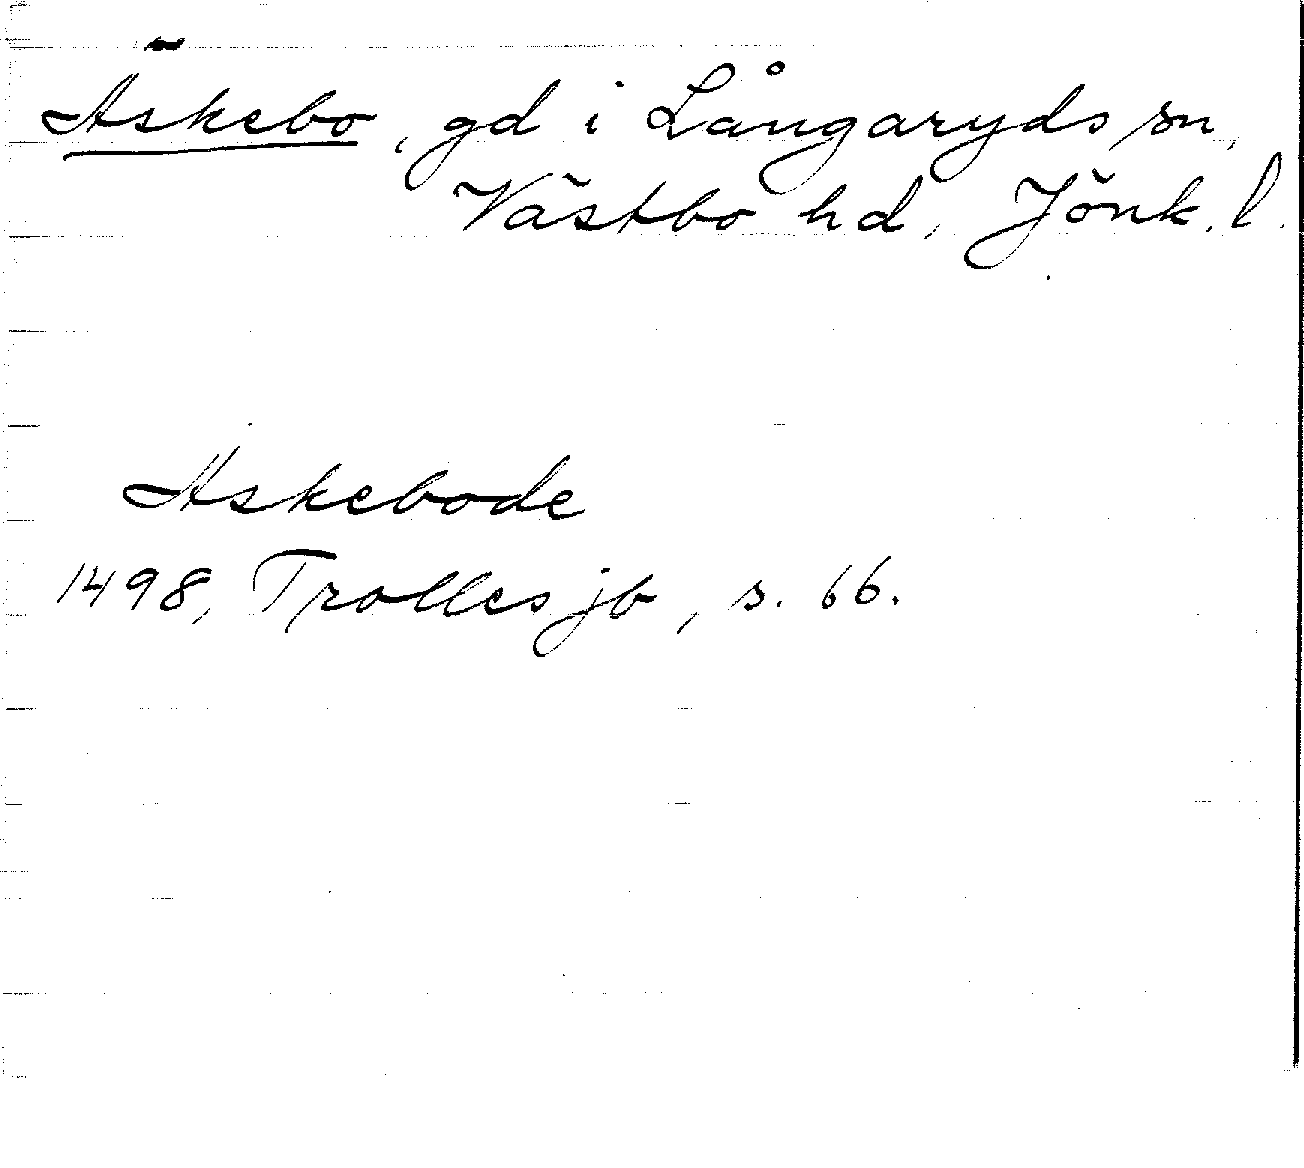 Äskebo, gd i Långaryds sn,
Västbo hd, Jönk. l.
Askebode
1498, Trolles jb, s. 66.